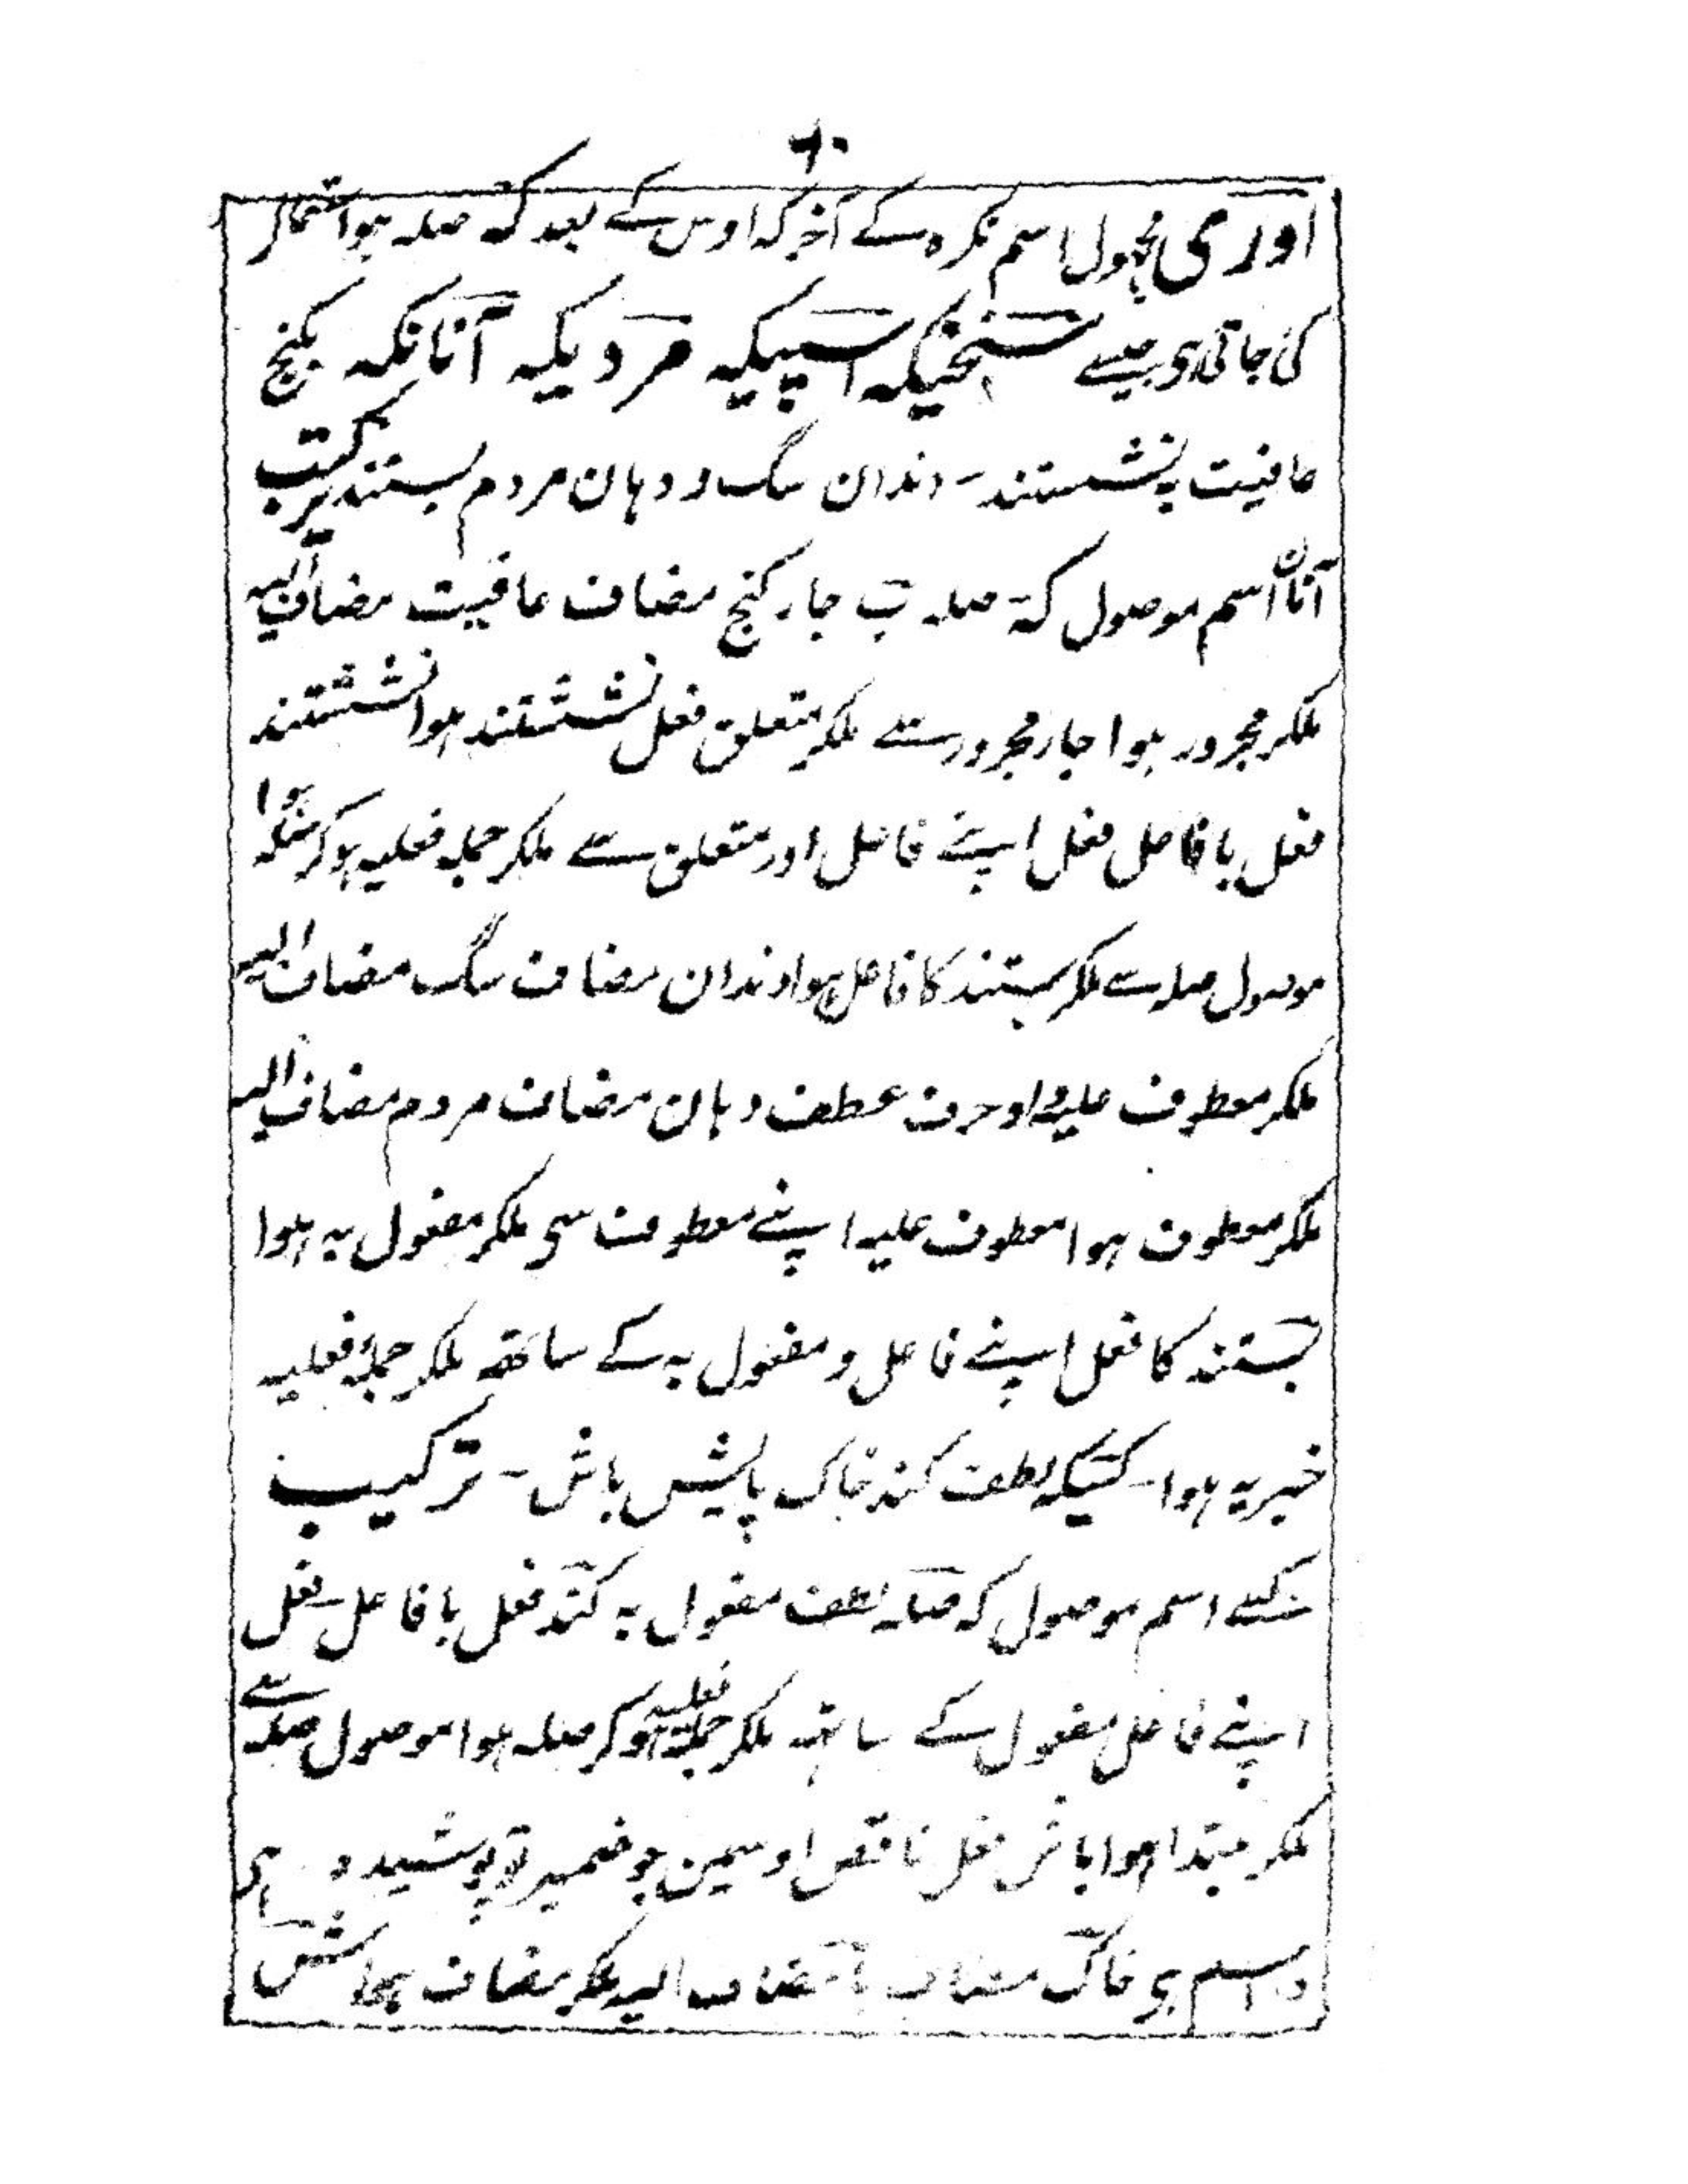 ۶۰
اور ی مجہول اسم نکرہ کے آخر کہ اوس کے بعد کہ صلہ ہو استعمال
کی جاتی ہی جیسے سخنیکہ اسپیکہ مردیکہ آنانکہ بکنج
عافیت بہ نشستند ۔ دندان سگ و دہان مردم بستند ترکیب
آنان اسم موصول کہ صلہ ب جار کنج مضاف عافیت مضاف الیہ
ملکر مجرور ہوا جار مجرور سے ملکر متعلق فعل نشستند ہوا نشستند
فعل با فاعل فعل اپنے فاعل اور متعلق سے ملکر جملہ فعلیہ ہوکر صلہ ہوا
موصول صلہ سے ملکر بستند کا فاعل ہوا دندان مضاف سگ مضاف الیہ
ملکر معطوف علیہ واو حرف عطف دہان مضاف مردم مضاف الیہ
ملکر معطوف ہوا معطوف علیہ اپنے معطوف سی ملکر مفعول بہ ہوا
بستند کا فعل اپنے فاعل و مفعول بہ کے ساتھ ملکر جملہ فعلیہ
خبریہ ہوا ۔ کسیکہ لطف کند خاک پایش باش ۔ ترکیب
کسے اسم موصول کہ صلہ لطف مفعول بہ کند فعل با فاعل ۔ فعل
اپنے فاعل مفعول کے ساتہ ملکر جملہ فعلیہ ہوکر صلہ ہوا موصول صلہ سے
ملکر مبتدا ہوا باش فعل ناقص اوسمین جو ضمیر تو پوشیدہ ہی
اسم ہی خاک مضاف پا مضاف الیہ ملکر مضاف ہوا ش